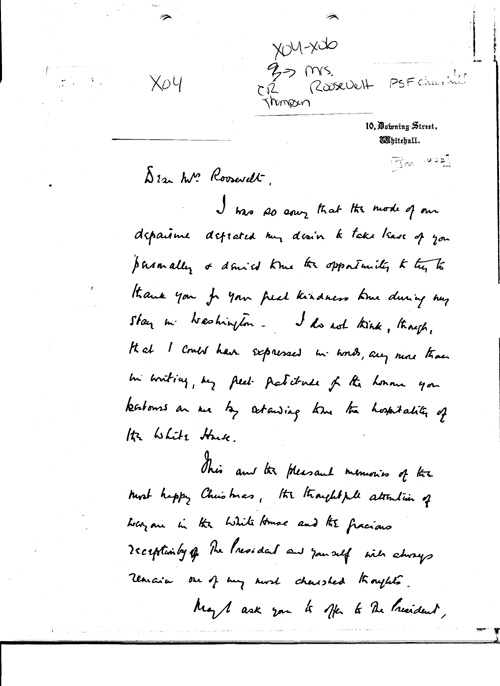 X04-X06
X04
Mrs.
Roosevelt PSF Churchill
CR
Thompson
10, Downing Street,
Whitehall.
Dear Mrs Roosevelt,
I was so sorry that the mode of our
departure defeated my desire to take leave of you
personally & denied to me the opportunity to try to
thank you for your great kindness to me during my
stay in Washington. I do not think, though,
that I could have expressed in words, any more than
in writing, my great gratitude for the honour you
bestowed on me by extending to me the hospitality of
the White House.
This and the pleasant memories of the
most happy Christmas, the thoughtful attention of
everyone in the White House and the gracious
reception by The President and yourself will always
remain one of my most cherished thoughts.
May I ask you to offer to The President,